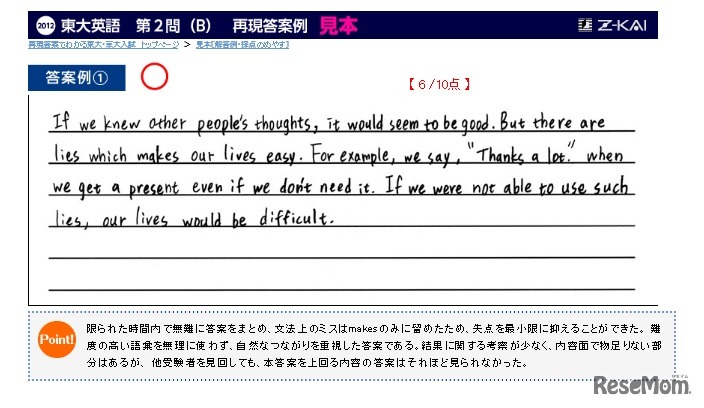 2012 東大英語 第2問(B) 再現答案例 見本 Z-KAI
再現答案でわかる東大・京大入試 トップページ > 見本[解答例・採点のめやす]
答案例① 【6/10点】
If we knew other people's thoughts, it would seem to be good. But there are
lies which makes our lives easy. For example, we say, "Thanks a lot." when
we get a present even if we don't need it. If we were not able to use such
lies, our lives would be difficult.
Point! 限られた時間内で無難に答案をまとめ、文法上のミスはmakesのみに留めたため、失点を最小限に抑えることができた。難
度の高い語彙を無理に使わず、自然なつながりを重視した答案である。結果に関する考察が少なく、内容面で物足りない部
分はあるが、他受験者を見回しても、本答案を上回る内容の答案はそれほど見られなかった。
ReseMom.